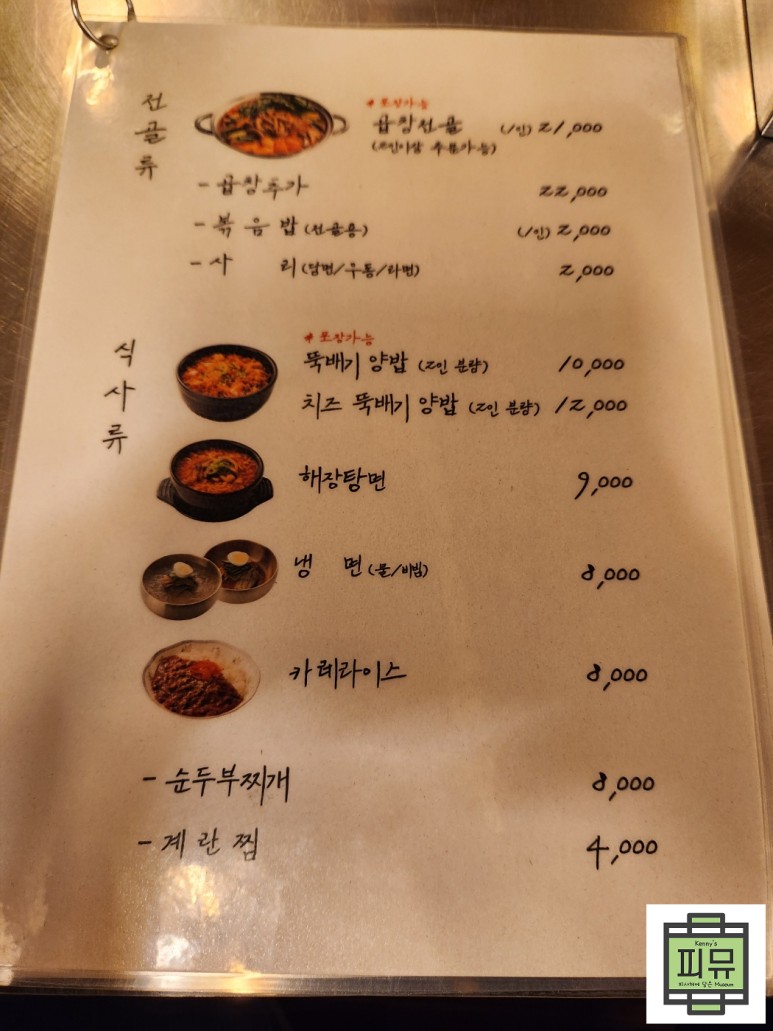 전골류
* 포장가능
곱창전골 (1인) 21,000
(2인이상 주문가능)
- 곱창추가 22,000
- 볶음밥 (전골용) (1인) 2,000
- 사리 (당면/우동/라면) 2,000
식사류
* 포장가능
뚝배기 양밥 (2인 분량) 10,000
치즈 뚝배기 양밥 (2인 분량) 12,000
해장탕면 9,000
냉면 (물/비빔) 8,000
카레라이스 8,000
- 순두부찌개 8,000
- 계란찜 4,000
Kenny's
피뮤
피사체에 담은 Museum